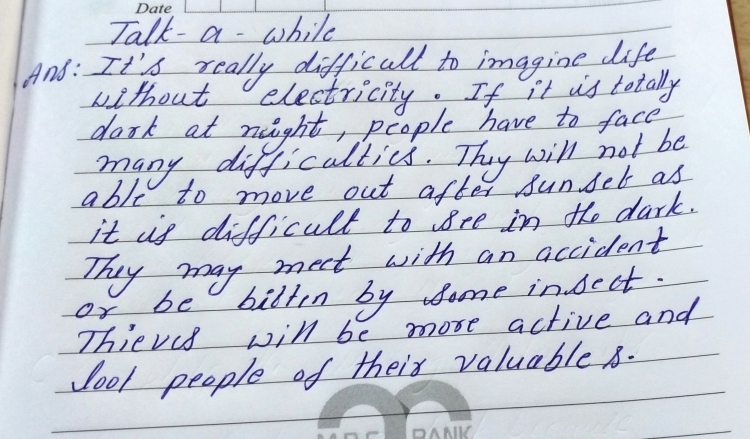 Date
Talk-a-while
Ans: It's really difficult to imagine life
without electricity. If it is totally
dark at night, people have to face
many difficulties. They will not be
able to move out after sunset as
it is difficult to see in the dark.
They may meet with an accident
or be bitten by some insect.
Thieves will be more active and
loot people of their valuables.
BANK